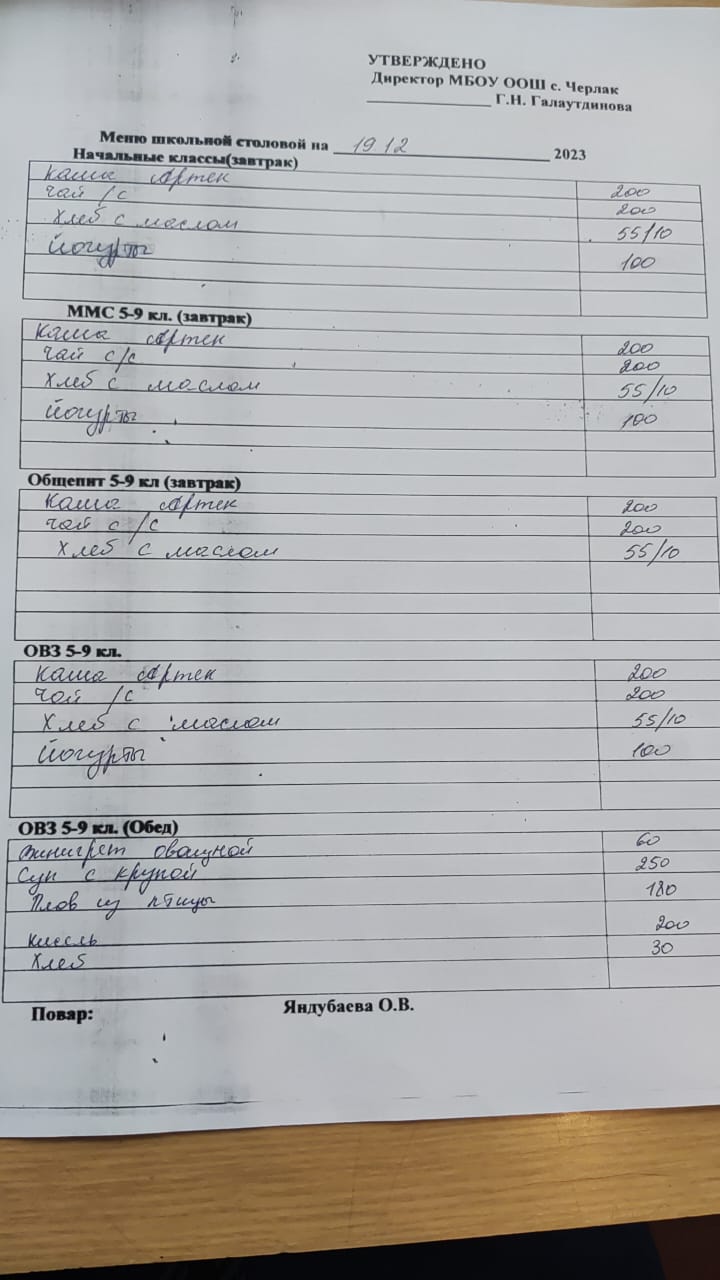 УТВЕРЖДЕНО
Директор МБОУ ООШ с. Черлак
______________ Г.Н. Галаутдинова
Меню школьной столовой на 19 12 2023
Начальные классы(завтрак)
Каша Артек 200
Чай /с 200
Хлеб с маслом 55/10
Йогурты 100
ММС 5-9 кл. (завтрак)
Каша Артек 200
Чай с/с 200
Хлеб с маслом 55/10
Йогурты 100
Общепит 5-9 кл (завтрак)
Каша Артек 200
Чай с/с 200
Хлеб с маслом 55/10
ОВЗ 5-9 кл.
Каша Артек 200
Чай /с 200
Хлеб с маслом 55/10
Йогурты 100
ОВЗ 5-9 кл. (Обед)
Винигрет 60
Суп с крупой 250
Плов из птицы 180
Кисель 200
Хлеб 30
Повар: Яндубаева О.В.